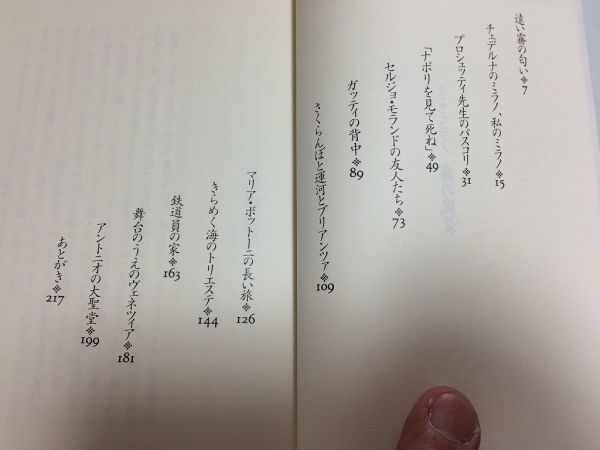 遠い霧の匂い※7
チェデルナのミラノ、私のミラノ※15
プロシェッティ先生のパスコリ※31
「ナポリを見て死ね」※49
セルジョ・モランドの友人たち※73
ガッティの背中※89
さくらんぼと運河とブリアンツァ※109
マリア・ボットーニの長い旅※126
きらめく海のトリエステ※144
鉄道員の家※163
舞台のうえのヴェネツィア※181
アントニオの大聖堂※199
あとがき※217